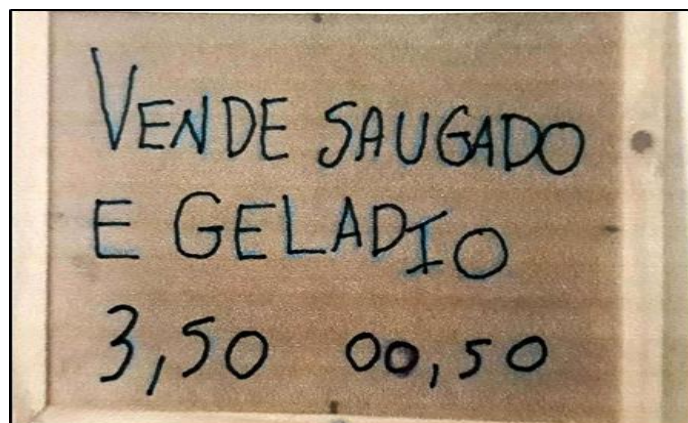 VENDE SAUGADO
E GELADIO
3,50 00,50